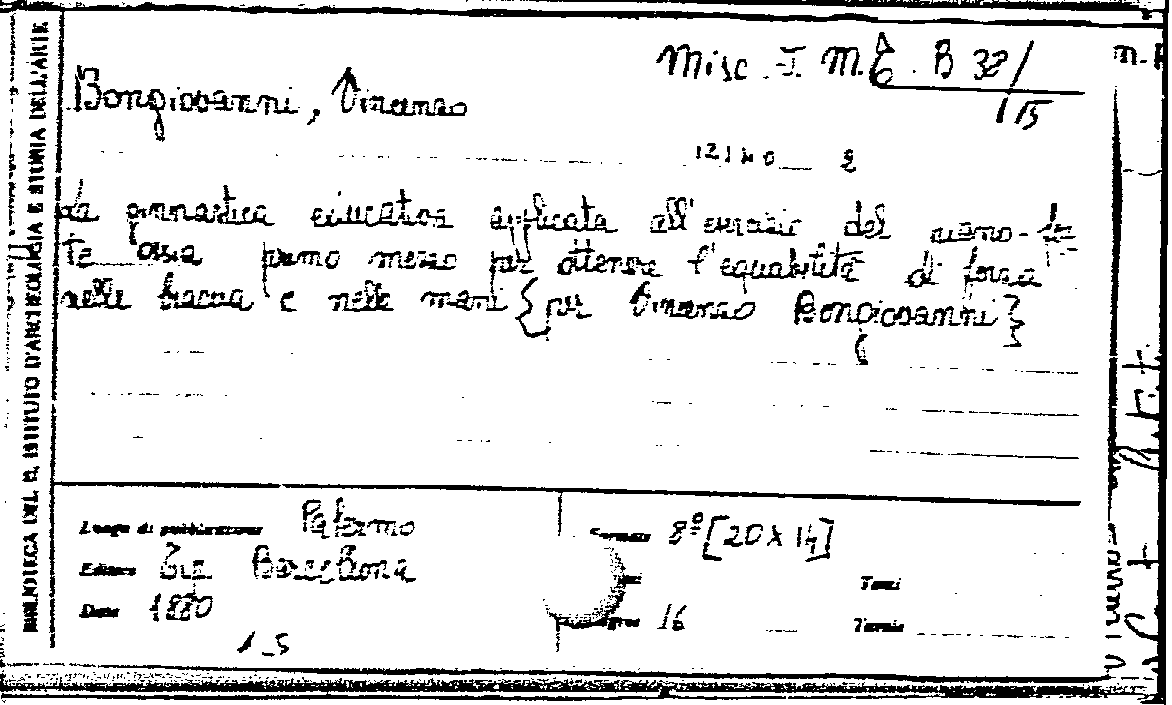 Misc. I. M. E. B 32/
15
Bongiovanni, Vincenzo
12140 2
La ginnastica educativa applicata all'esercizio del piano-for
te ossia primo mezzo per ottenere l'equabilità di forza
nelle braccia e nelle mani {per Vincenzo Bongiovanni}
Luogo di pubblicazione Palermo
Formato 8º [20 x 14]
Editore Tip. Barcellona
Tomi
Data 1880
Pagine 16
Tavole
1_5
BIBLIOTECA DEL R. ISTITUTO D'ARCHEOLOGIA E STORIA DELL'ARTE